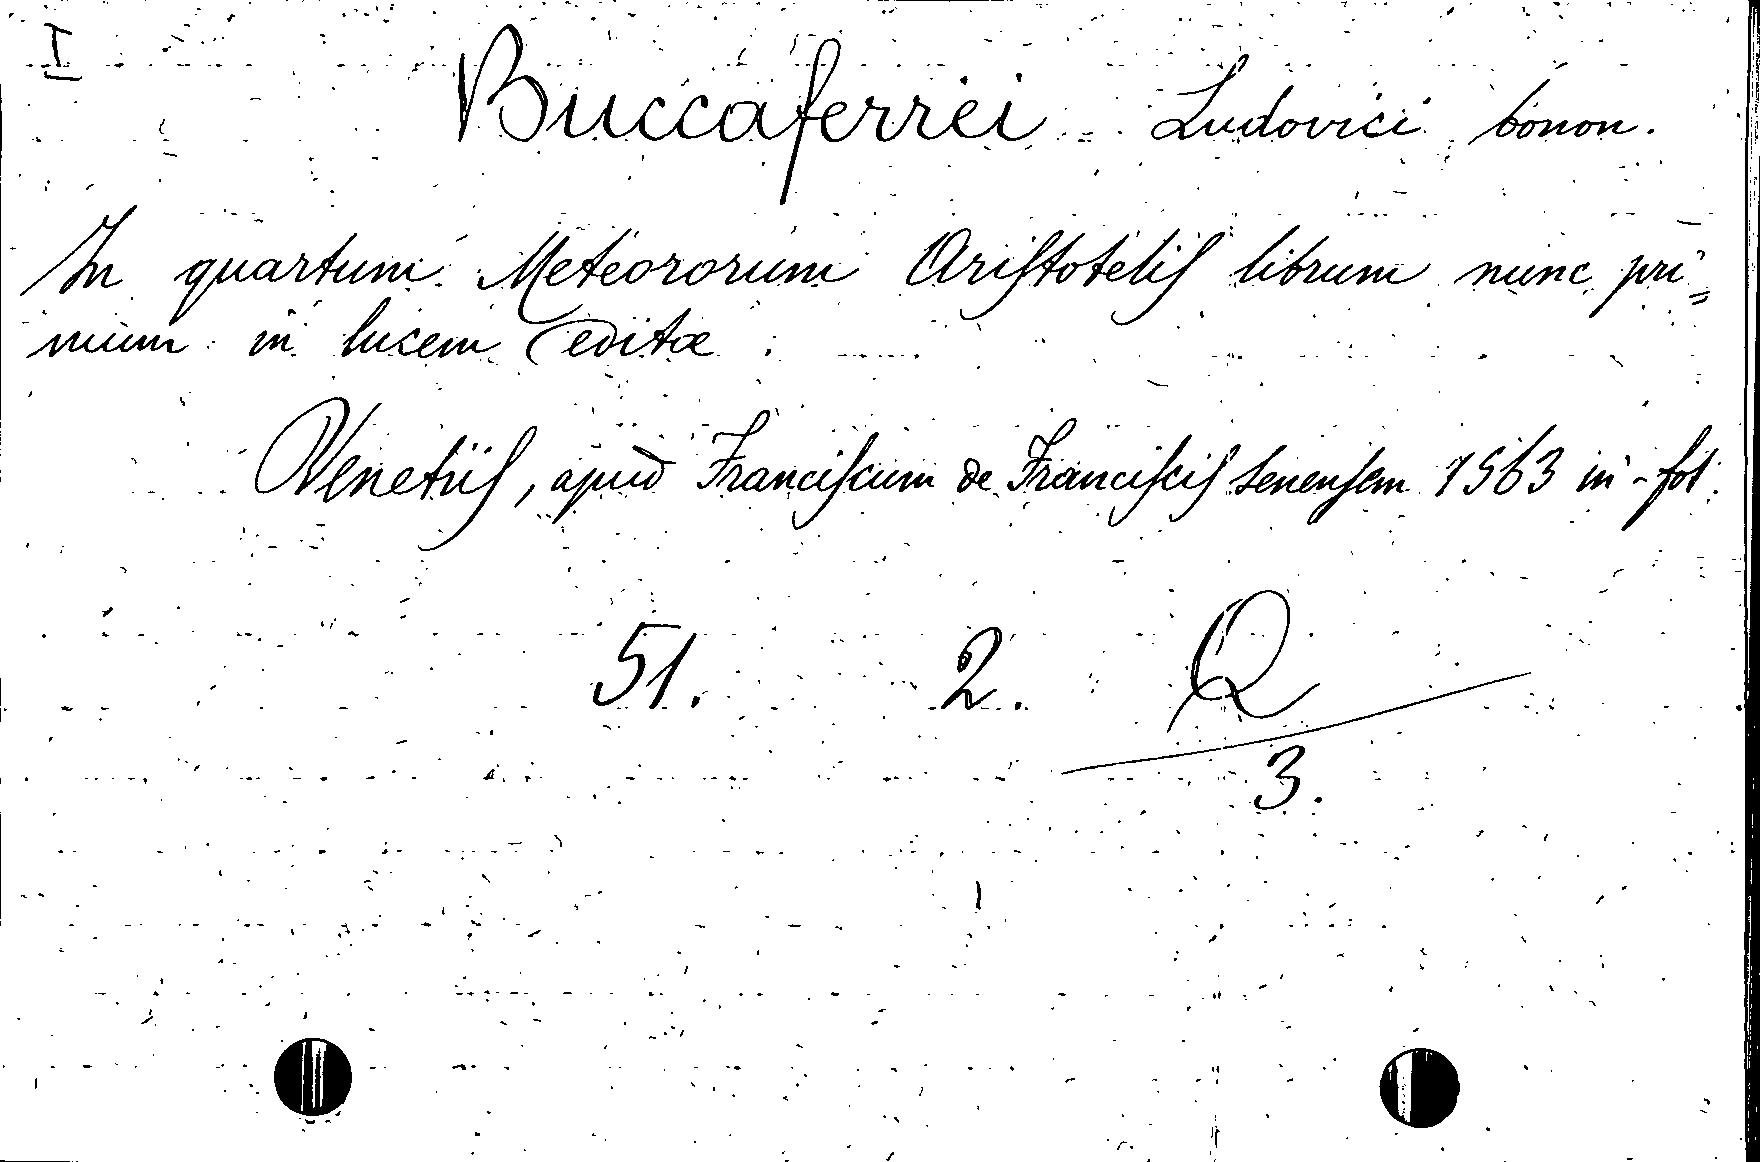 I
Buccaferrei Ludovici bonon.
In quartum Meteororum Ariſtoteliſ librum nunc pri=
mum in lucem editæ.
Venetiiſ, apud Franciſcum de Franciſciſ Senenſem 1563 in-fol.
51. 2. Q
3.